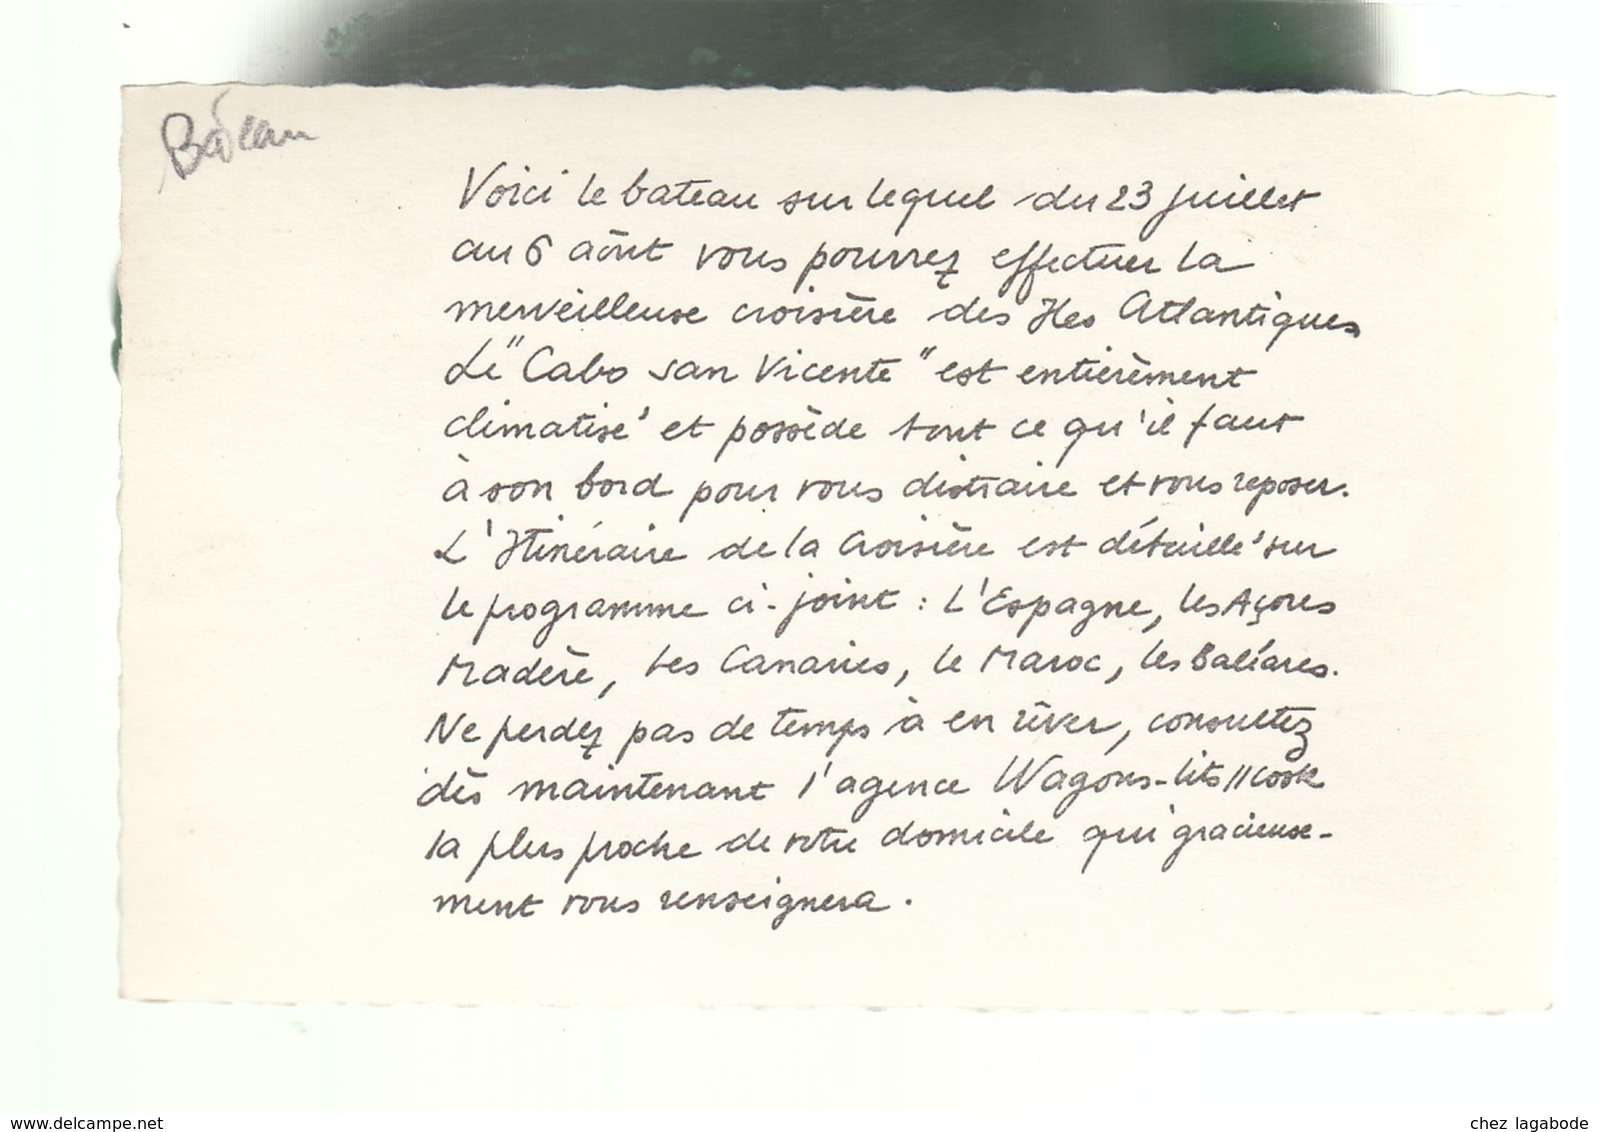 Bateau
Voici le bateau sur lequel du 23 Juillet
au 6 août vous pourrez effectuer la
merveilleuse croisière des Iles Atlantiques
Le "Cabo san Vicente" est entièrement
climatisé et possède tout ce qu'il faut
à son bord pour vous distraire et vous reposer.
L'Itinéraire de la Croisière est détaillé sur
le programme ci-joint : L'Espagne, les Açores
Madère, Les Canaries, le Maroc, les Baléares.
Ne perdez pas de temps à en rêver, consultez
dès maintenant l'agence Wagons-lits//Cook
la plus proche de votre domicile qui gracieuse-
ment vous renseignera.
www.delcampe.net
chez lagabode